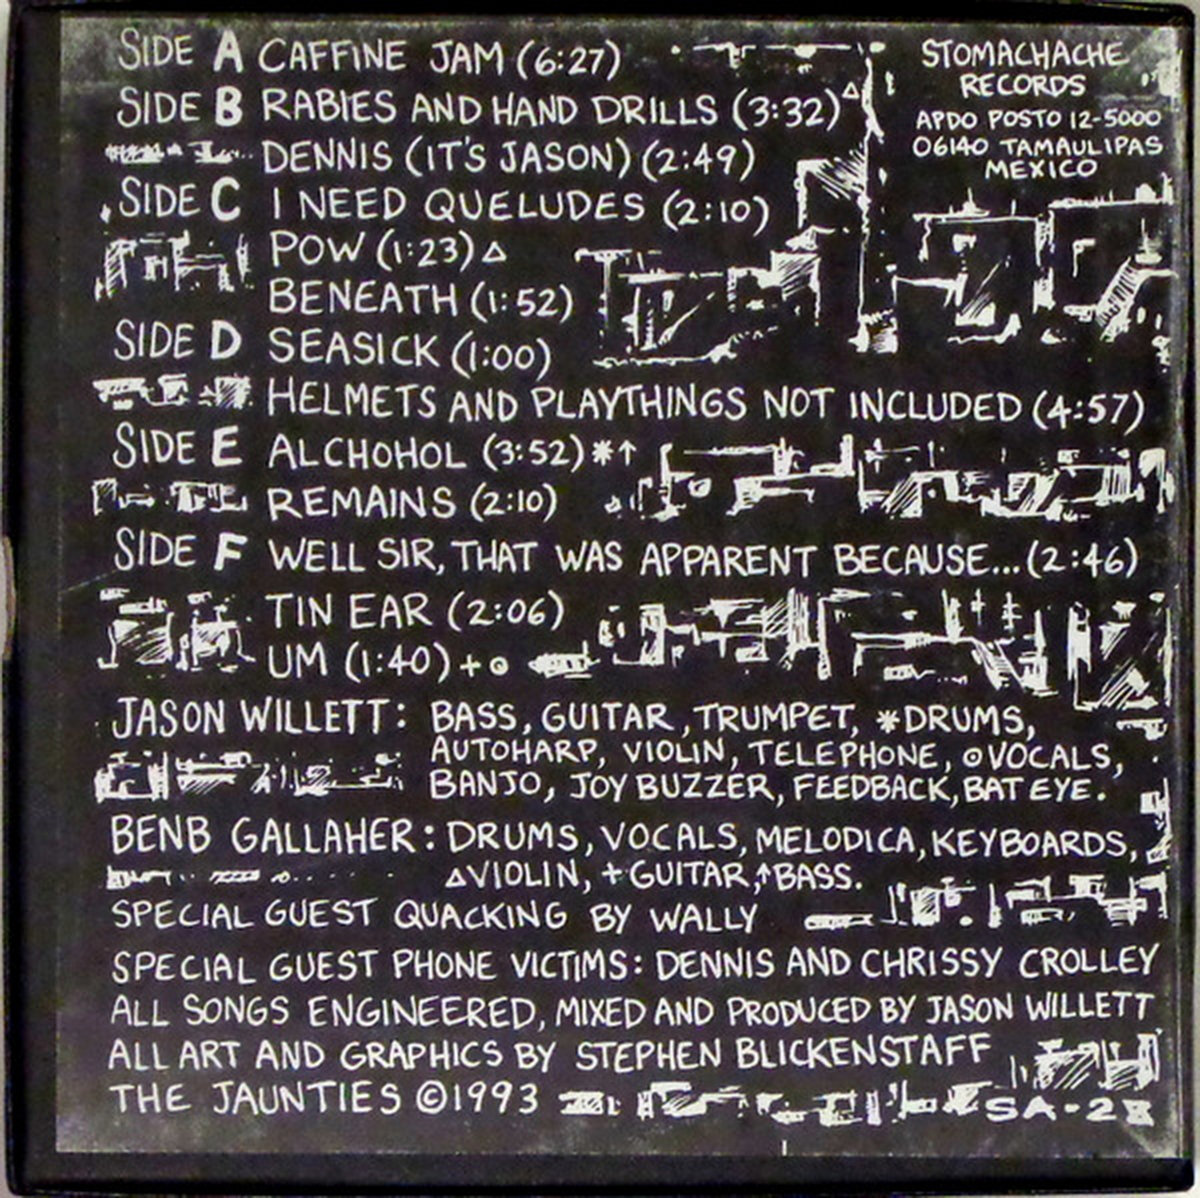 SIDE A CAFFINE JAM (6:27)
SIDE B RABIES AND HAND DRILLS (3:32)△
DENNIS (IT'S JASON) (2:49)
SIDE C I NEED QUELUDES (2:10)
POW (1:23) △
BENEATH (1:52)
SIDE D SEASICK (1:00)
HELMETS AND PLAYTHINGS NOT INCLUDED (4:57)
SIDE E ALCHOHOL (3:52) *↑
REMAINS (2:10)
SIDE F WELL SIR, THAT WAS APPARENT BECAUSE... (2:46)
TIN EAR (2:06)
UM (1:40) + ⊙
STOMACHACHE
RECORDS
APDO POSTO 12-5000
06140 TAMAULIPAS
MEXICO
JASON WILLETT: BASS, GUITAR, TRUMPET, *DRUMS,
AUTOHARP, VIOLIN, TELEPHONE, ⊙VOCALS,
BANJO, JOY BUZZER, FEEDBACK, BAT EYE.
BENB GALLAHER: DRUMS, VOCALS, MELODICA, KEYBOARDS,
△VIOLIN, +GUITAR, ↑BASS.
SPECIAL GUEST QUACKING BY WALLY
SPECIAL GUEST PHONE VICTIMS: DENNIS AND CHRISSY CROLLEY
ALL SONGS ENGINEERED, MIXED AND PRODUCED BY JASON WILLETT
ALL ART AND GRAPHICS BY STEPHEN BLICKENSTAFF
THE JAUNTIES ©1993